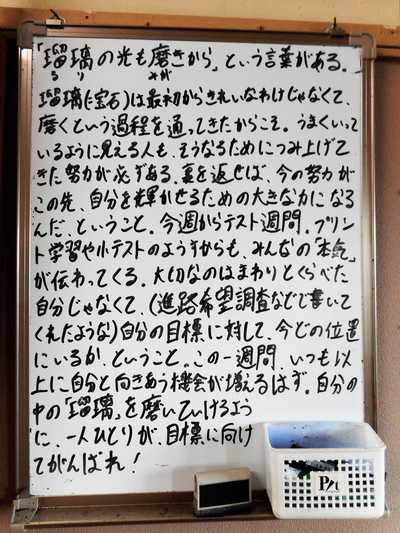 「瑠璃の光も磨きから」という言葉がある。
るり みが
瑠璃(=宝石)は最初からきれいなわけじゃなくて、
磨くという過程を通ってきたからこそ。うまくいって
いるように見える人も、そうなるためにつみ上げて
きた努力が必ずある。裏を返せば、今の努力が
この先、自分を輝かせるための大きな力になる
んだ、ということ。今週からテスト週間。プリン
ト学習や小テストのようすからも、みんなの「本気」
が伝わってくる。大切なのはまわりとくらべた
自分じゃなくて、(進路希望調査などで書いて
くれたような)自分の目標に対して、今どの位置
にいるか、ということ。この一週間、いつも以
上に自分と向きあう機会が増えるはず。自分の
中の「瑠璃」を磨いていけるよう
に、一人ひとりが、目標に向け
てがんばれ!